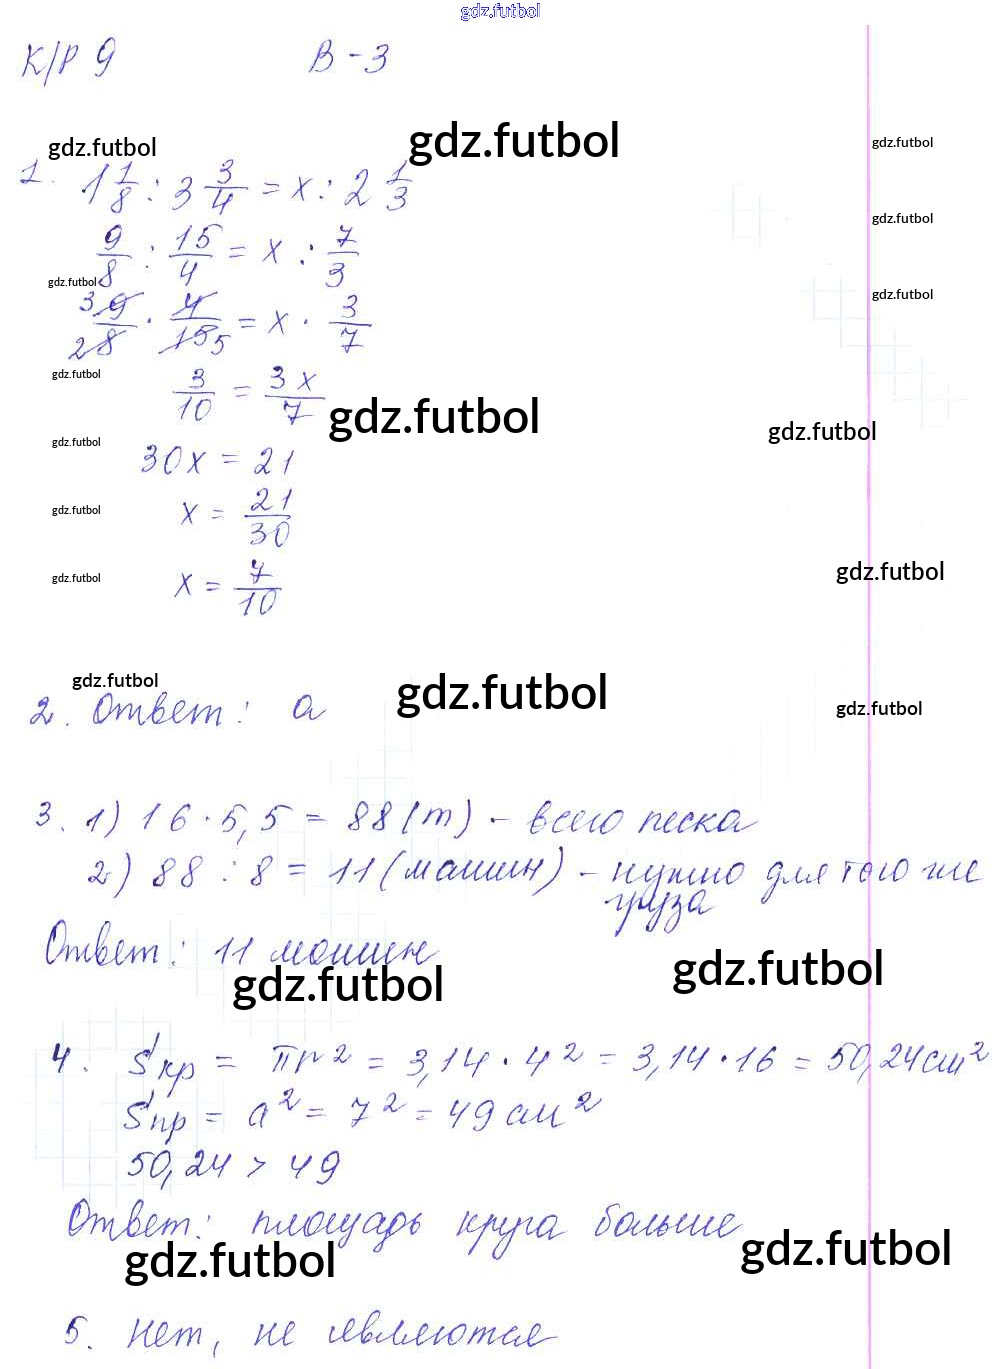 gdz.futbol
К/Р 9 В - 3
gdz.futbol gdz.futbol gdz.futbol
1. 1 1/8 : 3 3/4 = x : 2 1/3
gdz.futbol
9/8 : 15/4 = x : 7/3
gdz.futbol gdz.futbol
3 9/8 2 · 4/15 5 = x · 3/7
gdz.futbol
3/10 = 3x/7
gdz.futbol gdz.futbol
gdz.futbol
30x = 21
gdz.futbol
x = 21/30
gdz.futbol gdz.futbol
x = 7/10
gdz.futbol gdz.futbol gdz.futbol
2. Ответ: а
3. 1) 16 · 5,5 = 88 (т) - всего песка
2) 88 : 8 = 11 (машин) - нужно для того же
груза
Ответ: 11 машин
gdz.futbol gdz.futbol
4. Sкр = πr² = 3,14 · 4² = 3,14 · 16 = 50,24 см²
Sпр = a² = 7² = 49 см²
50,24 > 49
Ответ: площадь круга больше
gdz.futbol gdz.futbol
5. Нет, не являются